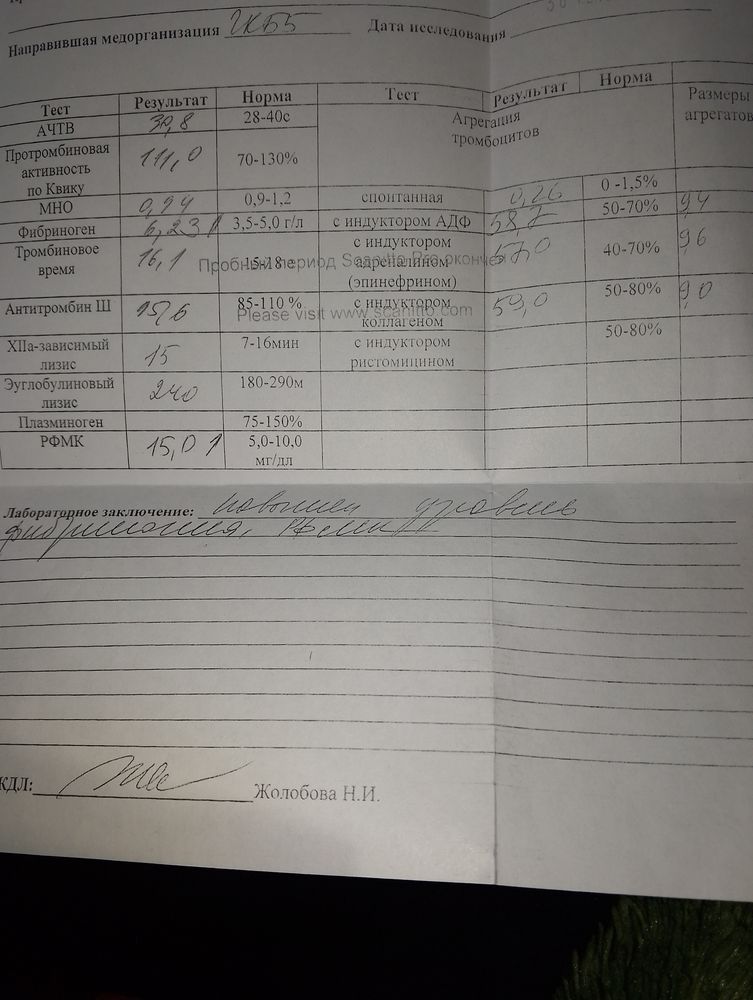 Направившая медорганизация ГКБ5 Дата исследования
Тест Результат Норма Тест Результат Норма Размеры агрегатов
АЧТВ 28-40с Агрегация тромбоцитов
Протромбиновая активность по Квику 111,0 70-130%
МНО 0,94 0,9-1,2 спонтанная 0,26 0 -1,5%
Фибриноген 6,23↑ 3,5-5,0 г/л с индуктором АДФ 58,7 50-70% 9,4
Тромбиновое время 16,1 15-18 с с индуктором адреналином (эпинефрином) 57,0 40-70% 9,6
Пробный период Scanitto Pro окончен
Антитромбин III 85-110 % с индуктором коллагеном 59,0 50-80% 9,0
Please visit www.scanitto.com
XIIа-зависимый лизис 15 7-16мин с индуктором ристомицином 50-80%
Эуглобулиновый лизис 240 180-290м
Плазминоген 75-150%
РФМК 15,0↑ 5,0-10,0 мг/дл
Лабораторное заключение: повышен уровень
фибриногена, РФМК
КДЛ: Жолобова Н.И.